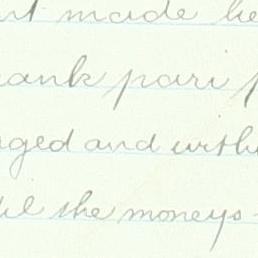 made he
ank pari p
aged and with
the moneys